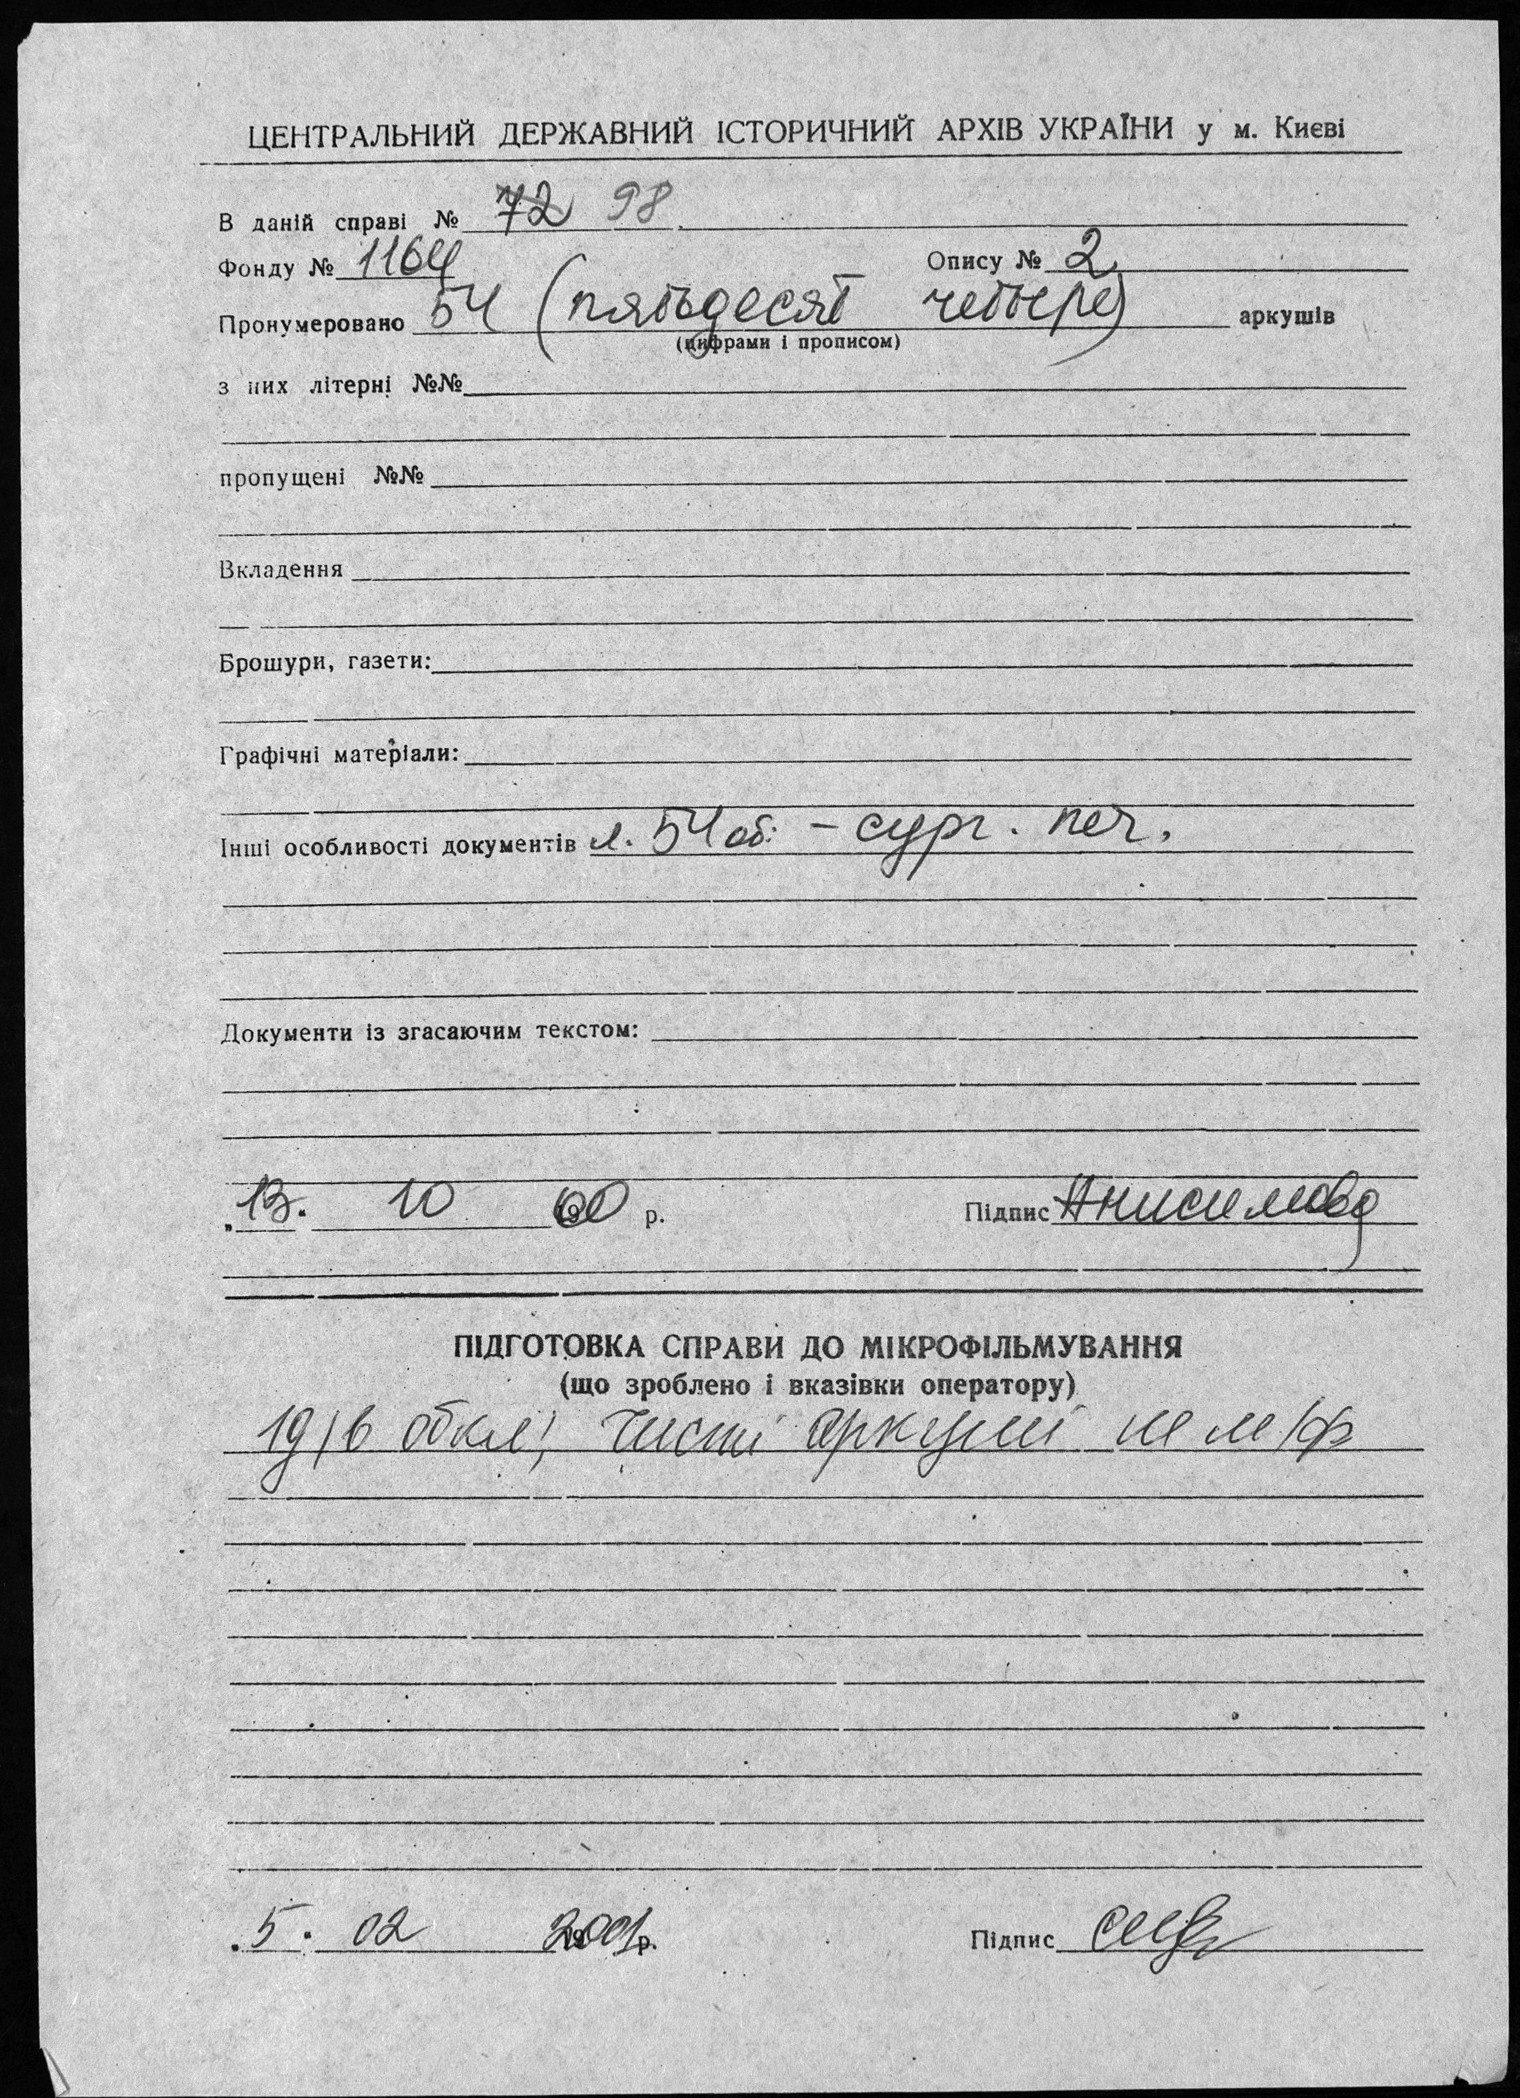 ЦЕНТРАЛЬНИЙ ДЕРЖАВНИЙ ІСТОРИЧНИЙ АРХІВ УКРАЇНИ у м. Києві
В даній справі № 72 98
Фонду № 1164 Опису № 2
Пронумеровано 54 (пятьдесят четыре) аркушів
(цифрами і прописом)
з них літерні №№
пропущені №№
Вкладення
Брошури, газети:
Графічні матеріали:
Інші особливості документів л. 54 об. – сург. печ.
Документи із згасаючим текстом:
„13." 10 00 р. Підпис Анисимова
ПІДГОТОВКА СПРАВИ ДО МІКРОФІЛЬМУВАННЯ
(що зроблено і вказівки оператору)
чисті аркуші не м/ф
„5" 02 2001 р. Підпис